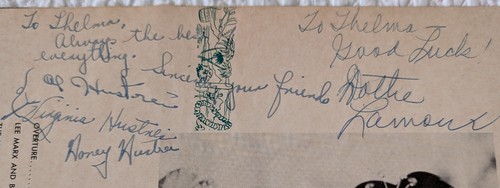 To Thelma,
Always the best
everything.
Sincerely
Al Hustrei
& Virginia Hustrei
Honey Hustrei
To Thelma -
Good Luck!
Your friend Dottie
Lamour
OVERTURE
LEE MARX AND B